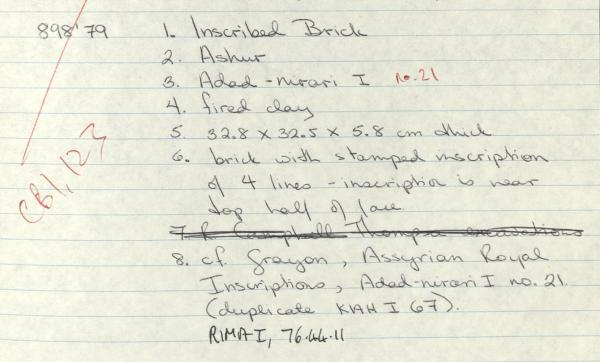 898'79 1. Inscribed Brick
2. Ashur
3. Adad-nirari I no.21
4. fired clay
5. 32.8 x 32.5 x 5.8 cm thick
6. brick with stamped inscription
of 4 lines - inscription is near
top half of face
CBI, 123
7. R Campbell Thompson excavations
8. cf. Grayson, Assyrian Royal
Inscriptions, Adad-nirari I no. 21.
(duplicate KIAH I 67).
RIMA I, 76.44.11